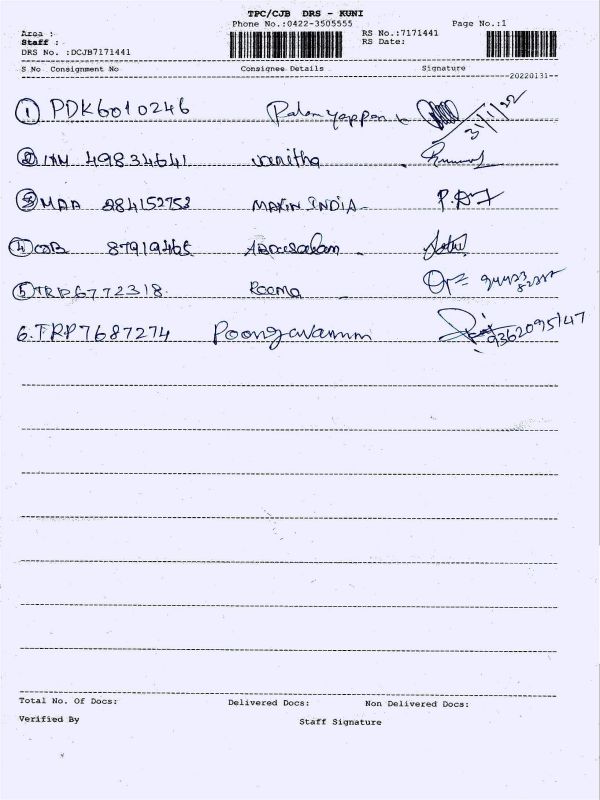 TPC/CJB DRS - KUNI
Phone No.:0422-3505555 Page No.:1
Area :
Staff : RS No.:7171441
DRS No. :DCJB7171441 RS Date:
S No Consignment No Consignee Details Signature
20220131
1 PDK6010246 Palaniyappan 31/1/22
2 49834641 vanitha
3 MAA 284152752 MAKIN INDIA P.
4 COB 87919465 Abdusalam
5 TRP6772318 Reema
6. TRP7687274 Poongavanam 9362095147
Total No. Of Docs: Delivered Docs: Non Delivered Docs:
Verified By Staff Signature